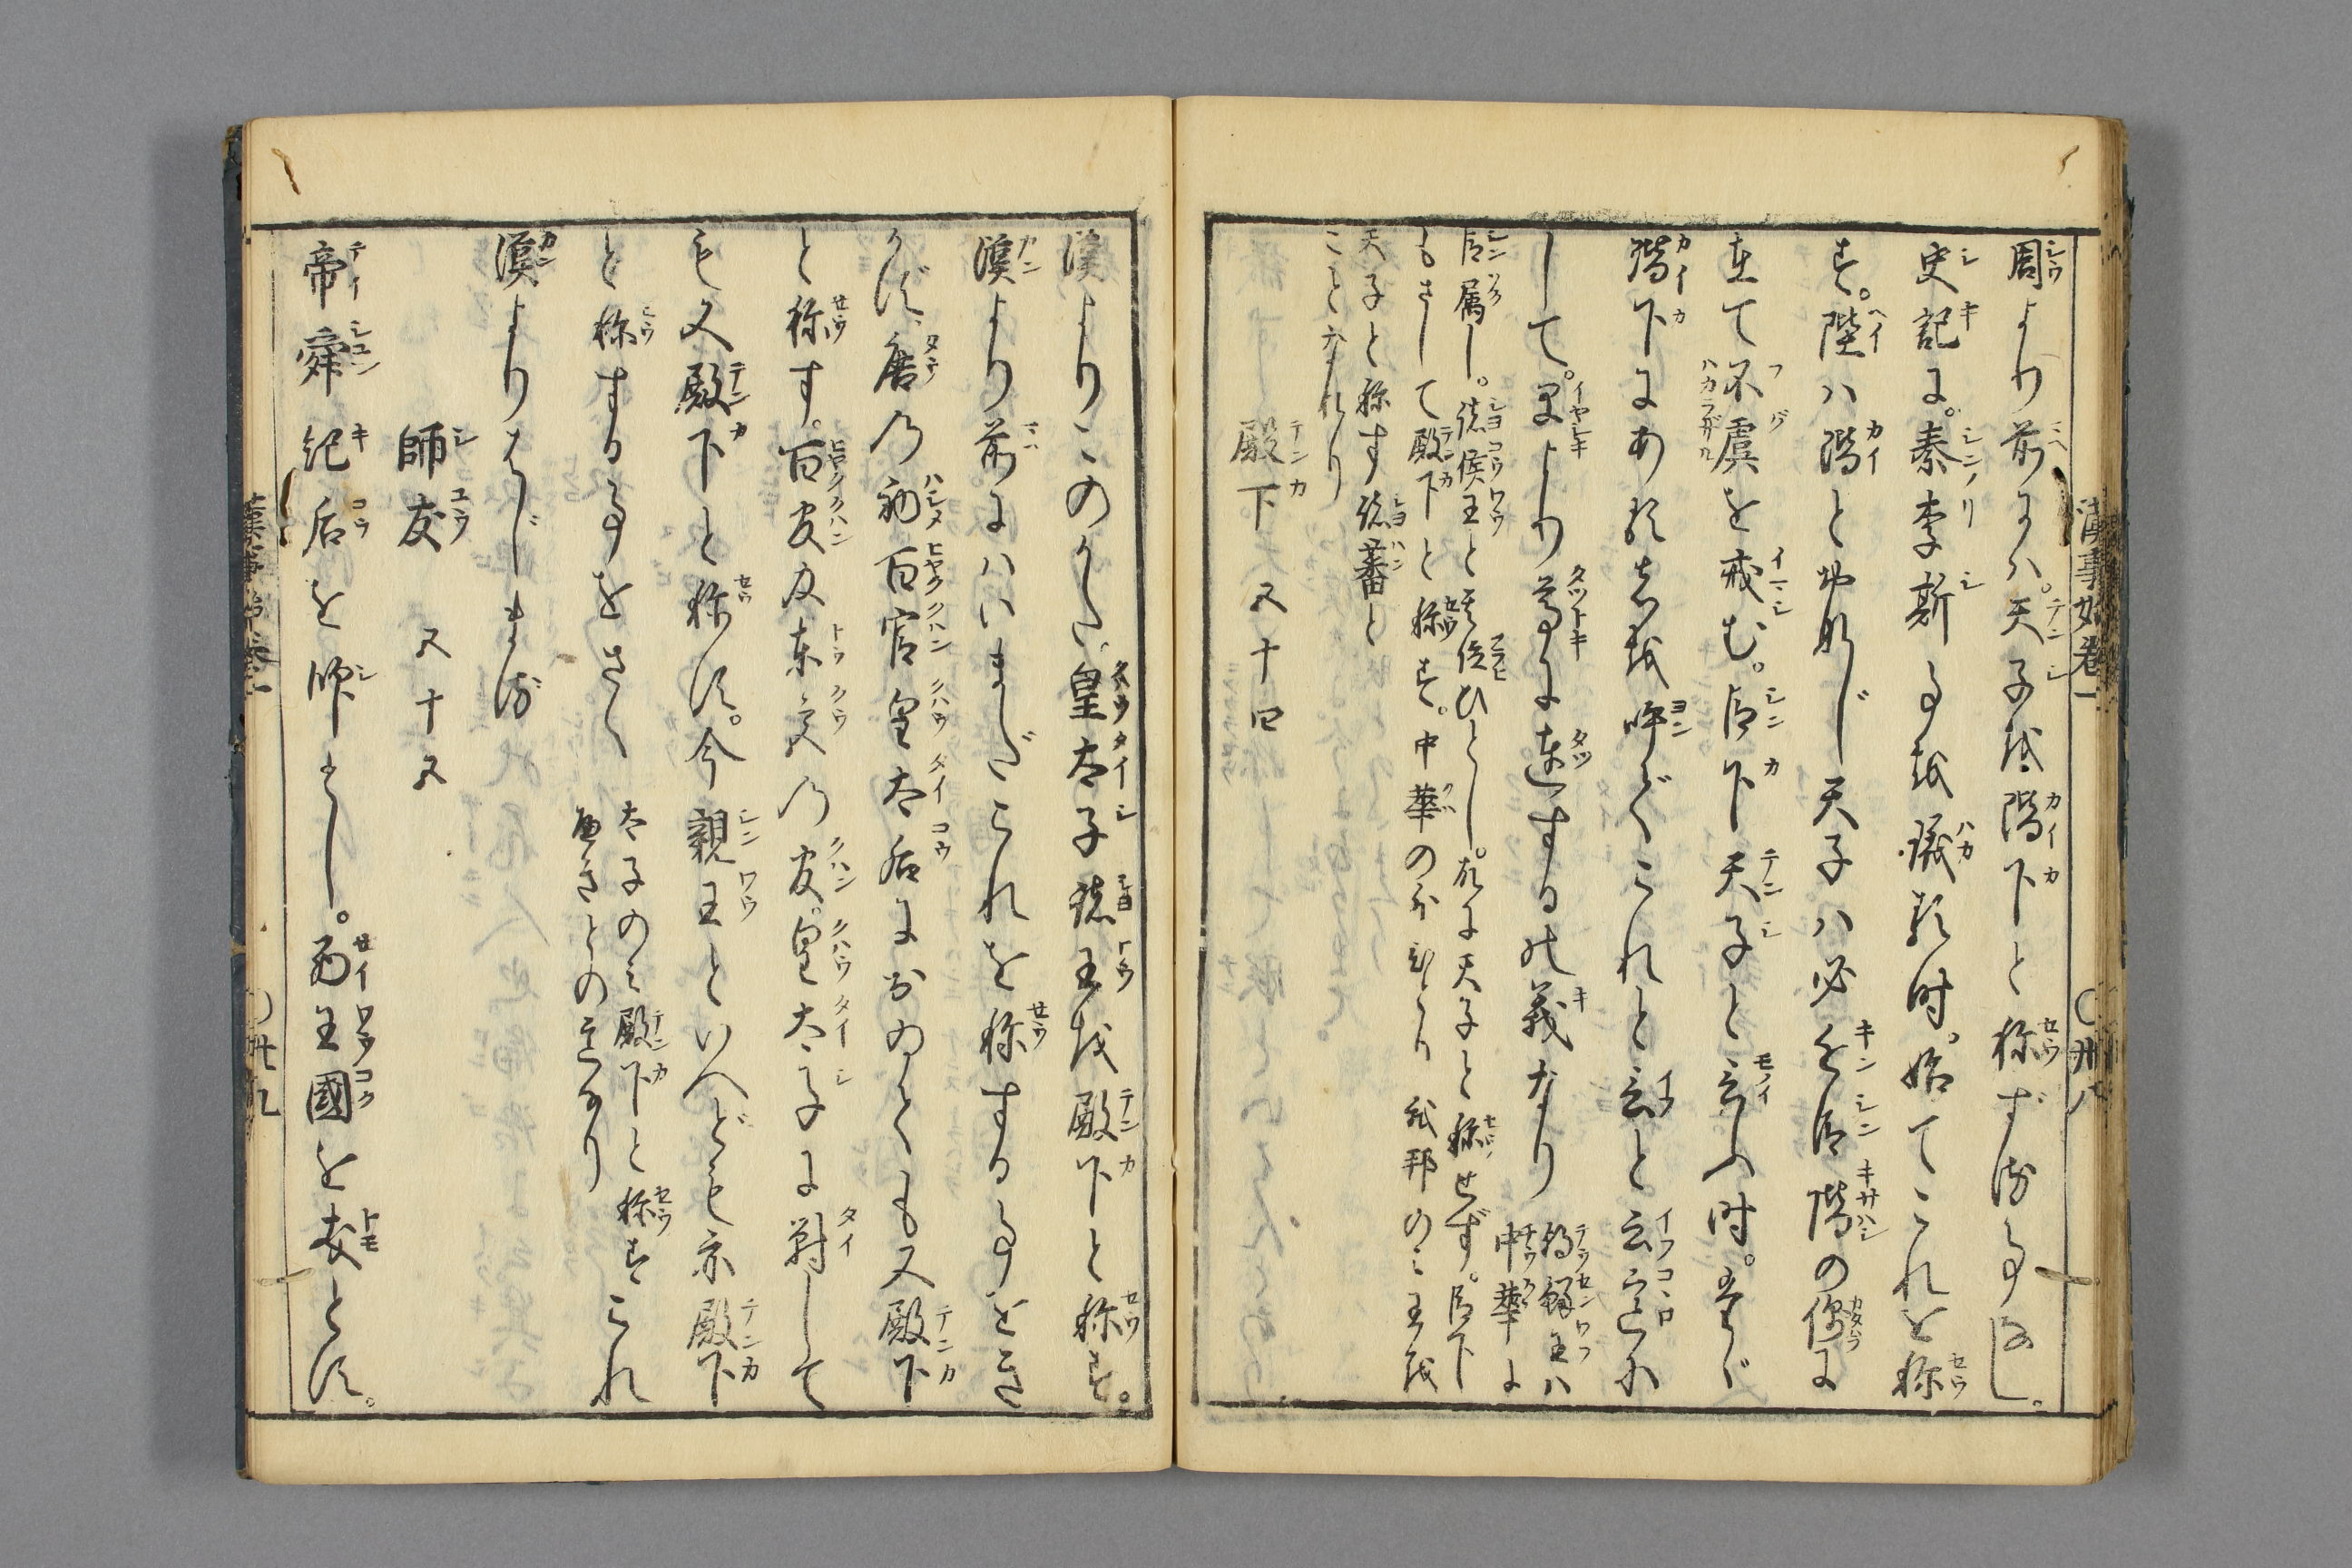 周より前には。天子を階下と称ずる事なし。
史記に。秦李斯事を議る時。始てこれを称
す。陛は階とおなじ天子は必近臣階の傍に
在て不虞を戒む。臣下天子と言ふ時。
階下にあるものを呼でこれと言と云こゝろに
して。卑より尊に達するの義なり
朝鮮王は
中華に
臣属し。諸侯王と其位ひとし。故に天子と称せず。臣下
もさして殿下と称す。中華の
天子と称す諸蕃と
ことなれり
殿下 五十四
漢事始巻一 〇卅八
漢よりこのかた、皇太子諸王を殿下と称す。
漢より前にはいまだこれを称する事をき
かず、唐の初百官皇太后におゐても又殿下
と称す。百官及東宮の官。皇太子に対して
も又殿下と称す。今親王といへども亦殿下
と称する事をきく
太子のみ殿下と称すこれ
漢よりはじまる
師友 五十五
帝舜紀后を師とし。西王国を友とす。
漢事始巻一 〇卅九